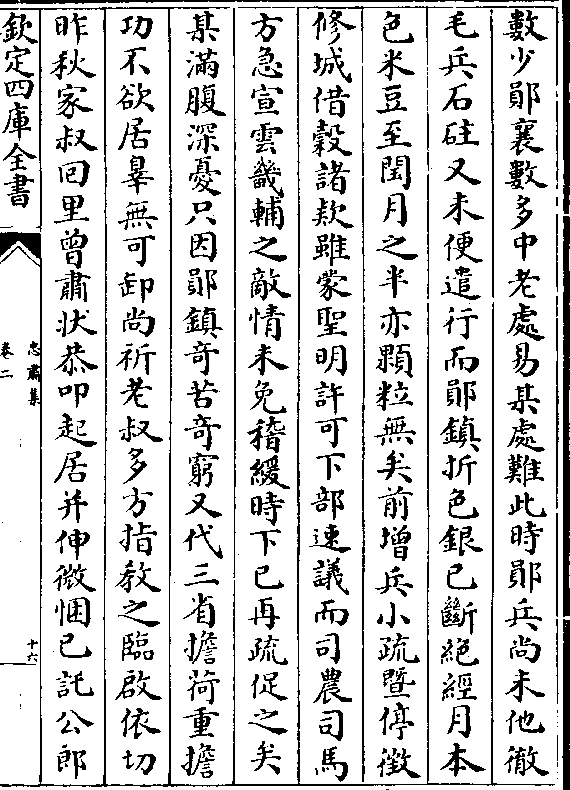 數少鄖襄數多中老處易某處難此時鄖兵尚未他徹
毛兵石砫又未便遣行而鄖鎮折色銀已斷絕經月本
色米豆至閏月之半亦顆粒無矣前增兵小疏暨停徴
修城借糓諸欵雖蒙聖明許可下部速議而司農司馬
方急宣雲畿輔之敵情未免稽緩時下已再疏促之矣
某滿腹深憂只因鄖鎮奇苦奇窮又代三省擔荷重擔
功不欲居辠無可卸尚祈老叔多方指教之臨啟依切
昨秋家叔囘里曾肅狀恭叩起居并伸微悃已託公郎
欽定四庫全書
忠肅集
卷二
十六